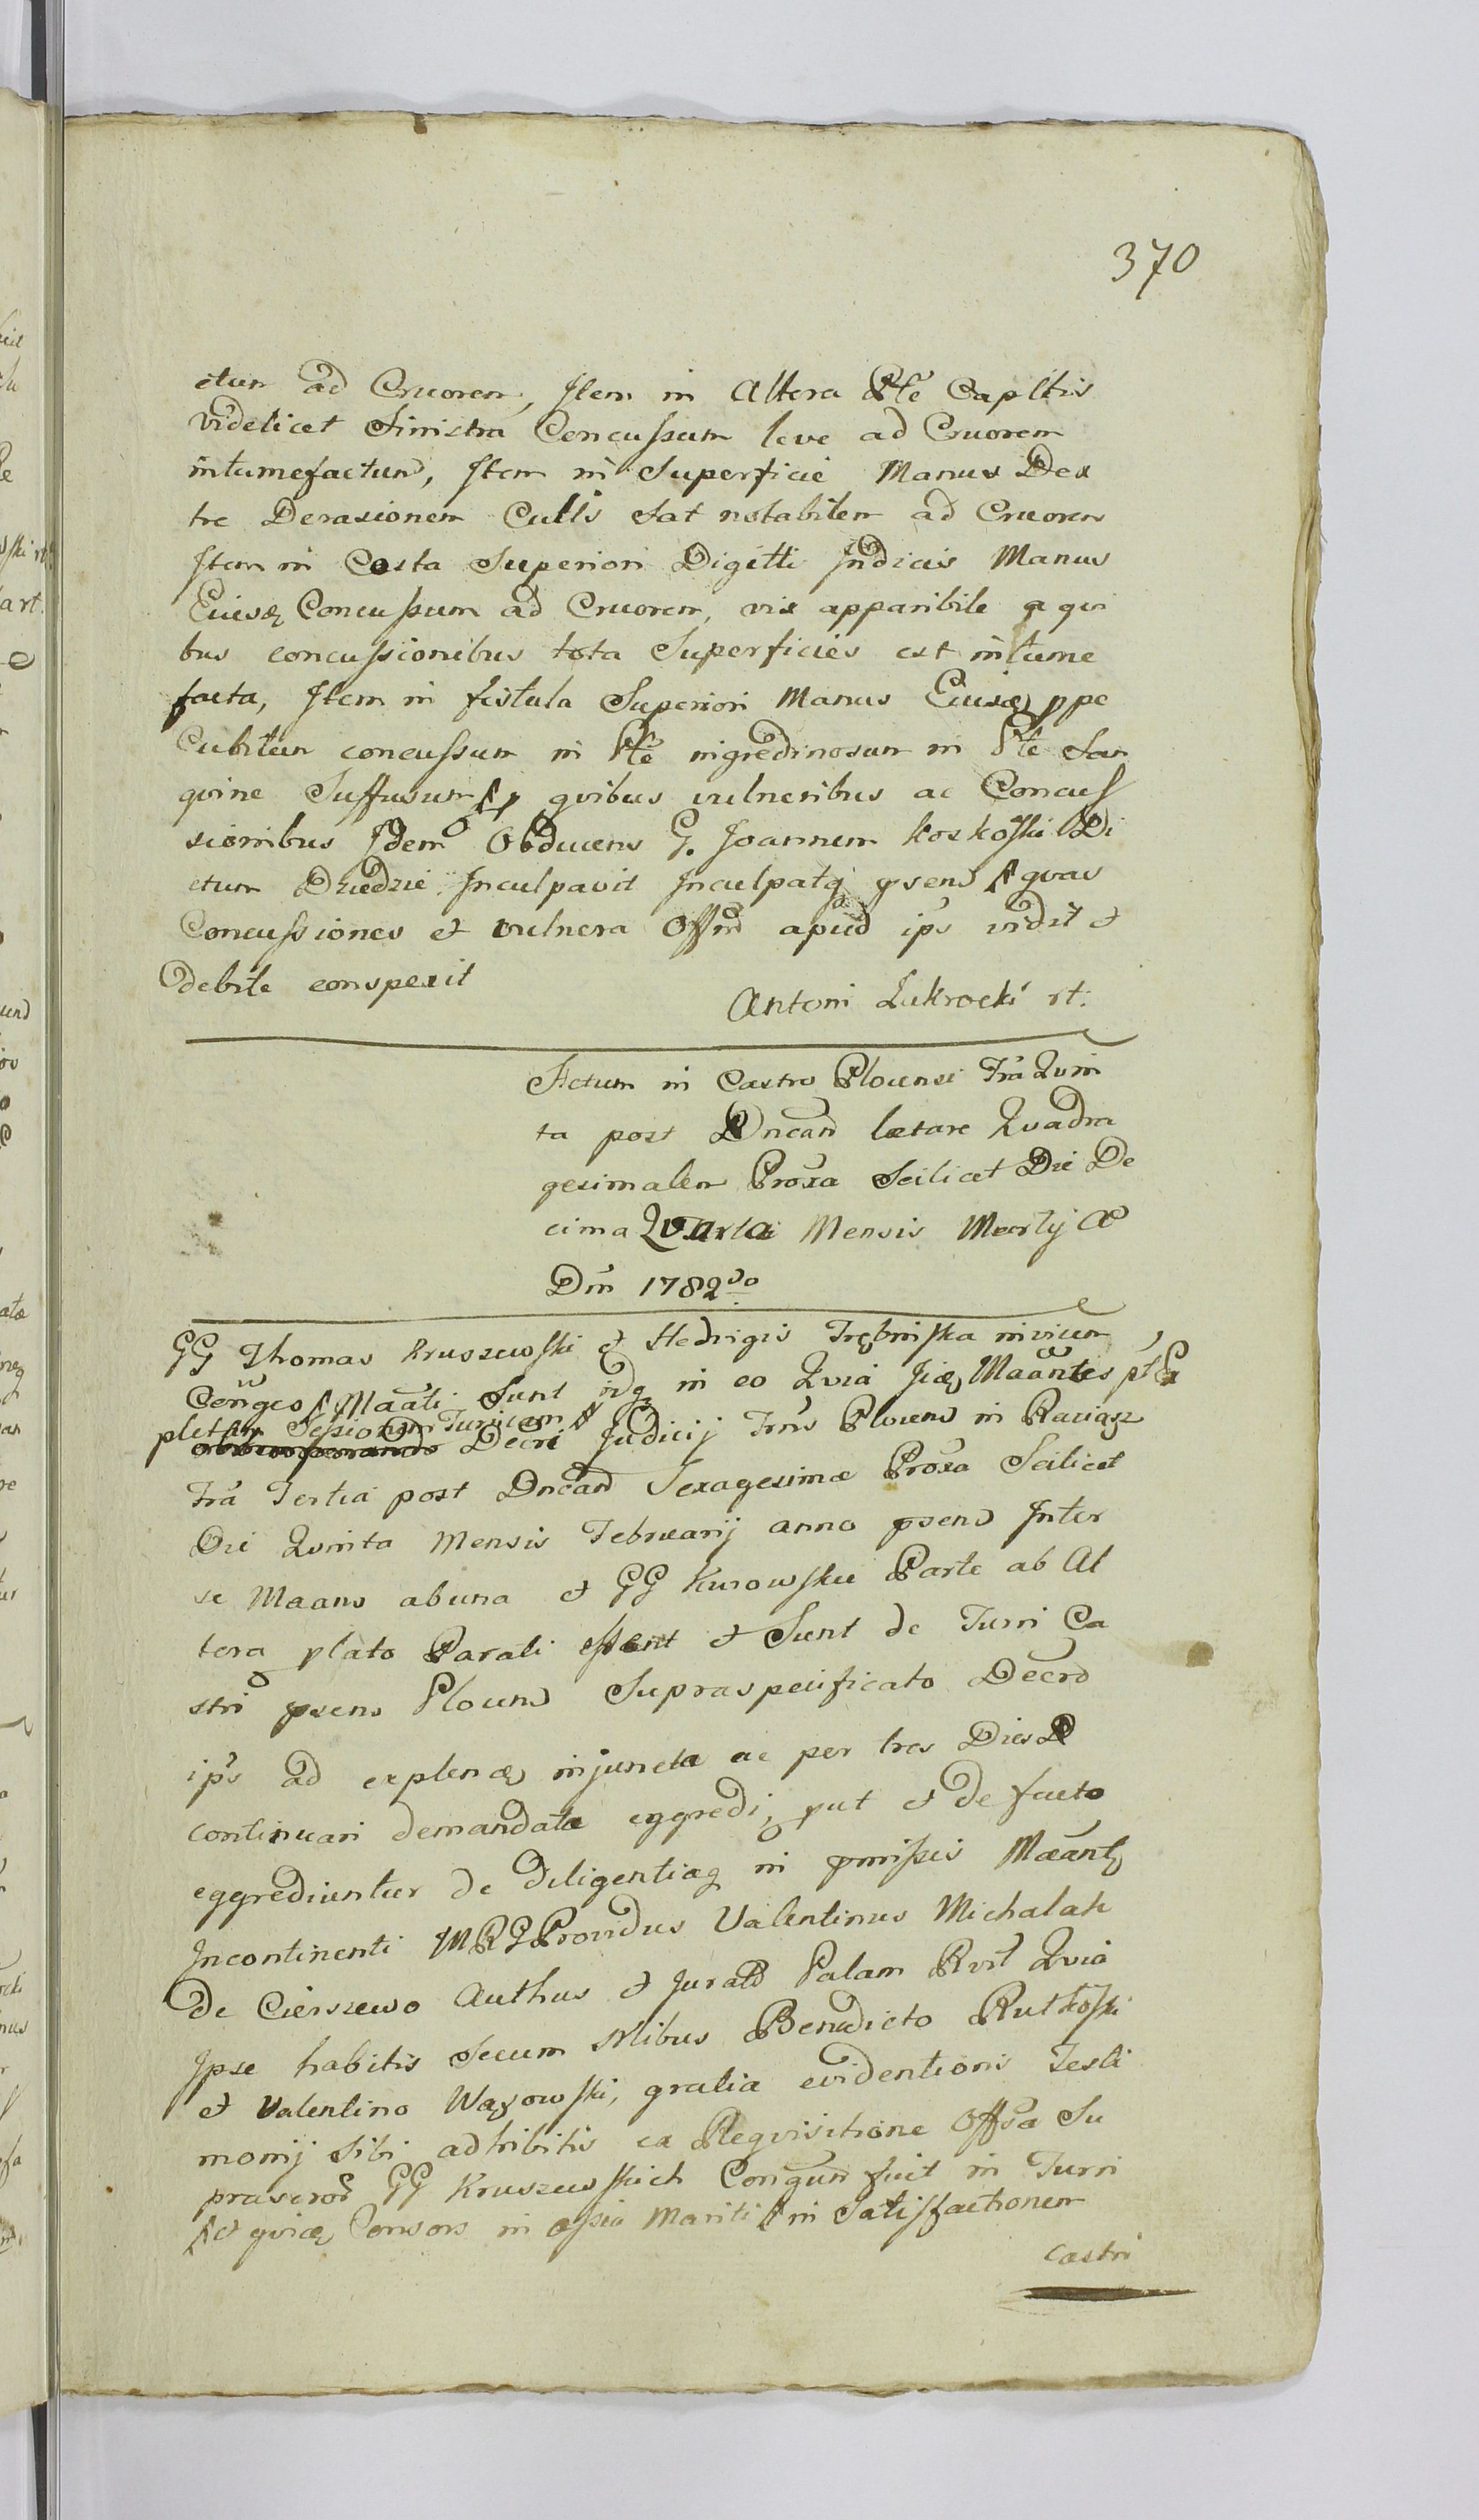 370
ctum ad Cruorem, Item in Altera Pte Capitis
videlicet Sinistra Concussum leve ad Cruorem
intumefactum, Item in Superficie Manus Dex
tre Derasionem Cutis Sat notabilem ad Cruorem
Item in Costa Superiori Digitti Indicis Manus
Eiusq Concussum ad Cruorem, vix apparibile a qui
bus concussionibus tota Superficies est intume
facta, Item in fistula Superiori Manus Eiusq ppe
Cubitum concussum in Pte nigredinosum in Pte San
gvine Suffusum qvibus vulneribus ac Concus
sionibus Idem Obducens G. Joannem Koskoski Di
ctum Dziedzic Inculpavit Inculpatq psens qvas
Concussiones et vulnera Offm apud ips vidit et
debite conspexit
Antoni Zukrocki rt.
Actum in Castro Plocensi Fra Qvin
ta post Dncam Lætare Qvadra
gesimalem Proxa Scilicet Die De
cima Qvarta Mensis Martij A
Dni 1782do
GG Thomas Kruszewski et Hedvigis Trębinska invicem
Conges Maati Sunt idq in eo Qvia Maantes
pletam Sessionem Turricam Decri Judicij Trris Plocens in Raciąsz
Fra Tertia post Dncam Sexagesimæ Proxa Scilicet
Die Qvinta Mensis Februarij anno psens Inter
se Maans ab una et GG Kurowskie Parte ab Al
tera plato Parati essent et Sunt de Turri Ca
stri psens Plocens Supraspecificato Decro
ips ad explenq injuncta ac per tres Dies
continuari demandata eggredi, put et de facto
eggrediuntur de diligentiaq in pmissis Maantq
Incontinenti MRS Providus Valentinus Michalak
De Cierszewo Authus et Jurats Palam Rvit Qvia
Ipse habitis Secum Nlibus Benedicto Rutkoski
et Valentino Wązowski, gratia evidentioris Testi
monij Sibi adhibitis ex Reqvisitione Offsa Su
prascror GG Kruszewskich Congum fuit in Turri
et qviaq Consors in assia Mariti in Satisfactionem
Castri